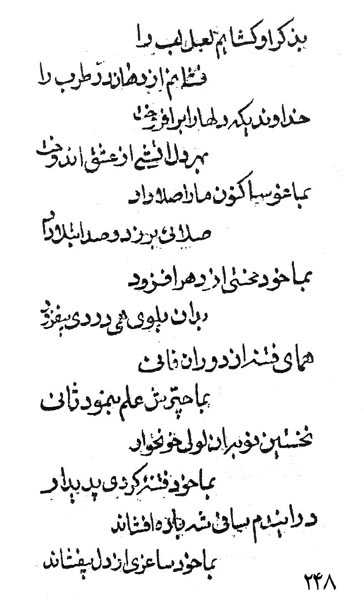 بذکر او کشایم لعل لب را
فشانم از دهان در طرب را
خداوندیکه دلها را برافروخت
بهر دل آتشی از عشق اندوخت
بما غوسا کنون ما را صلا داد
صلائی برزد و صد ابتلا داد
بما خود محنتی از دهر افزود
بران بلوی همی دردی بیفزود
همای فتنه از دوران فانی
بما چترش علم بنمود ثانی
نخستین نوبران لولی خونخوار
بما خود فتنه کردی پدیدار
در ایندم ساقی شه باده افشاند
بما خود ساغری از دل بیفشاند
۲۴۸